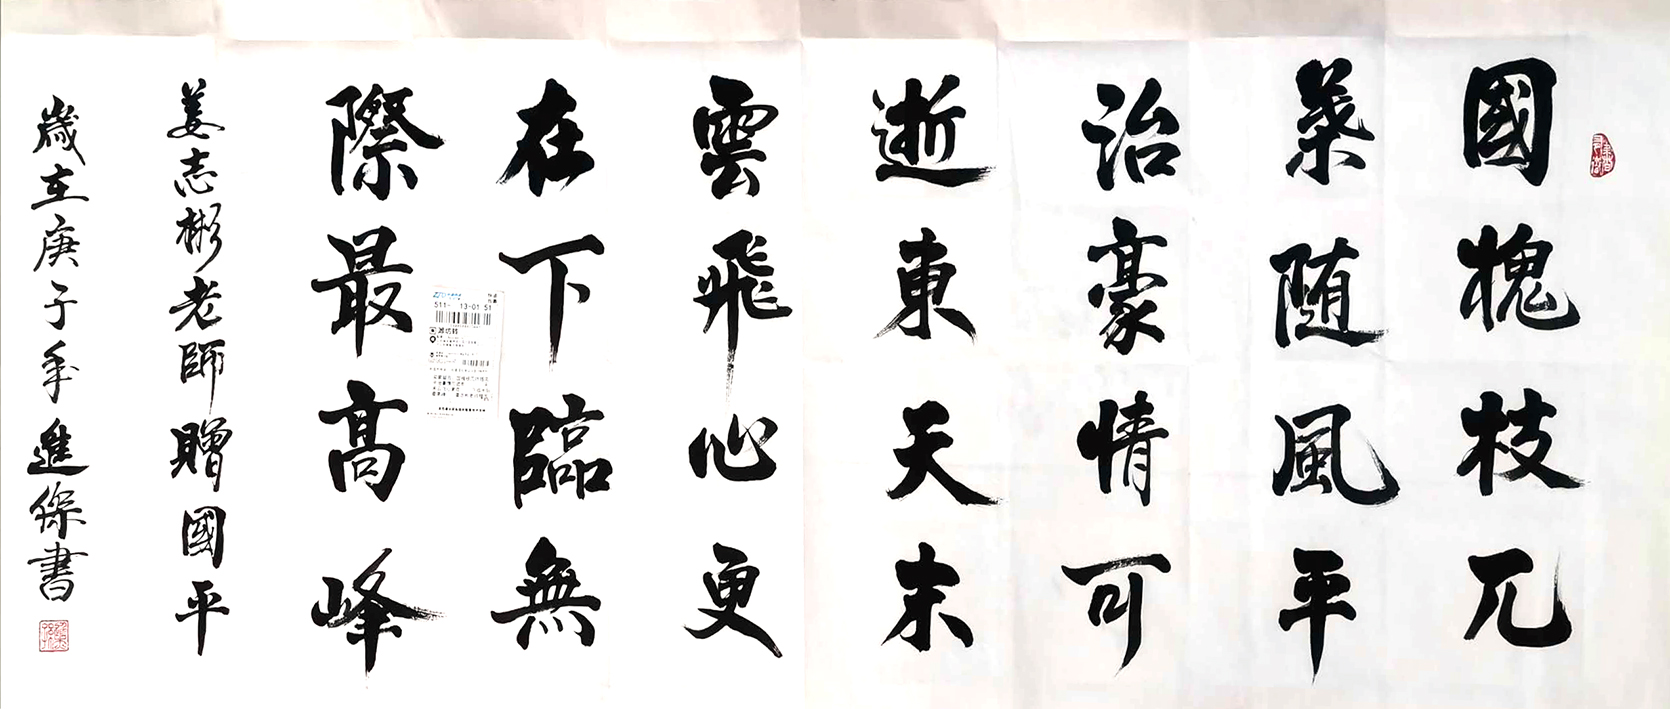 國槐枝兀
葉随風平
治豪情可
逝東天末
雲飛心更
在下臨無
際最高峰
姜志彬老師贈國平
歲在庚子年進保書
511- 13-01 51
潍坊转